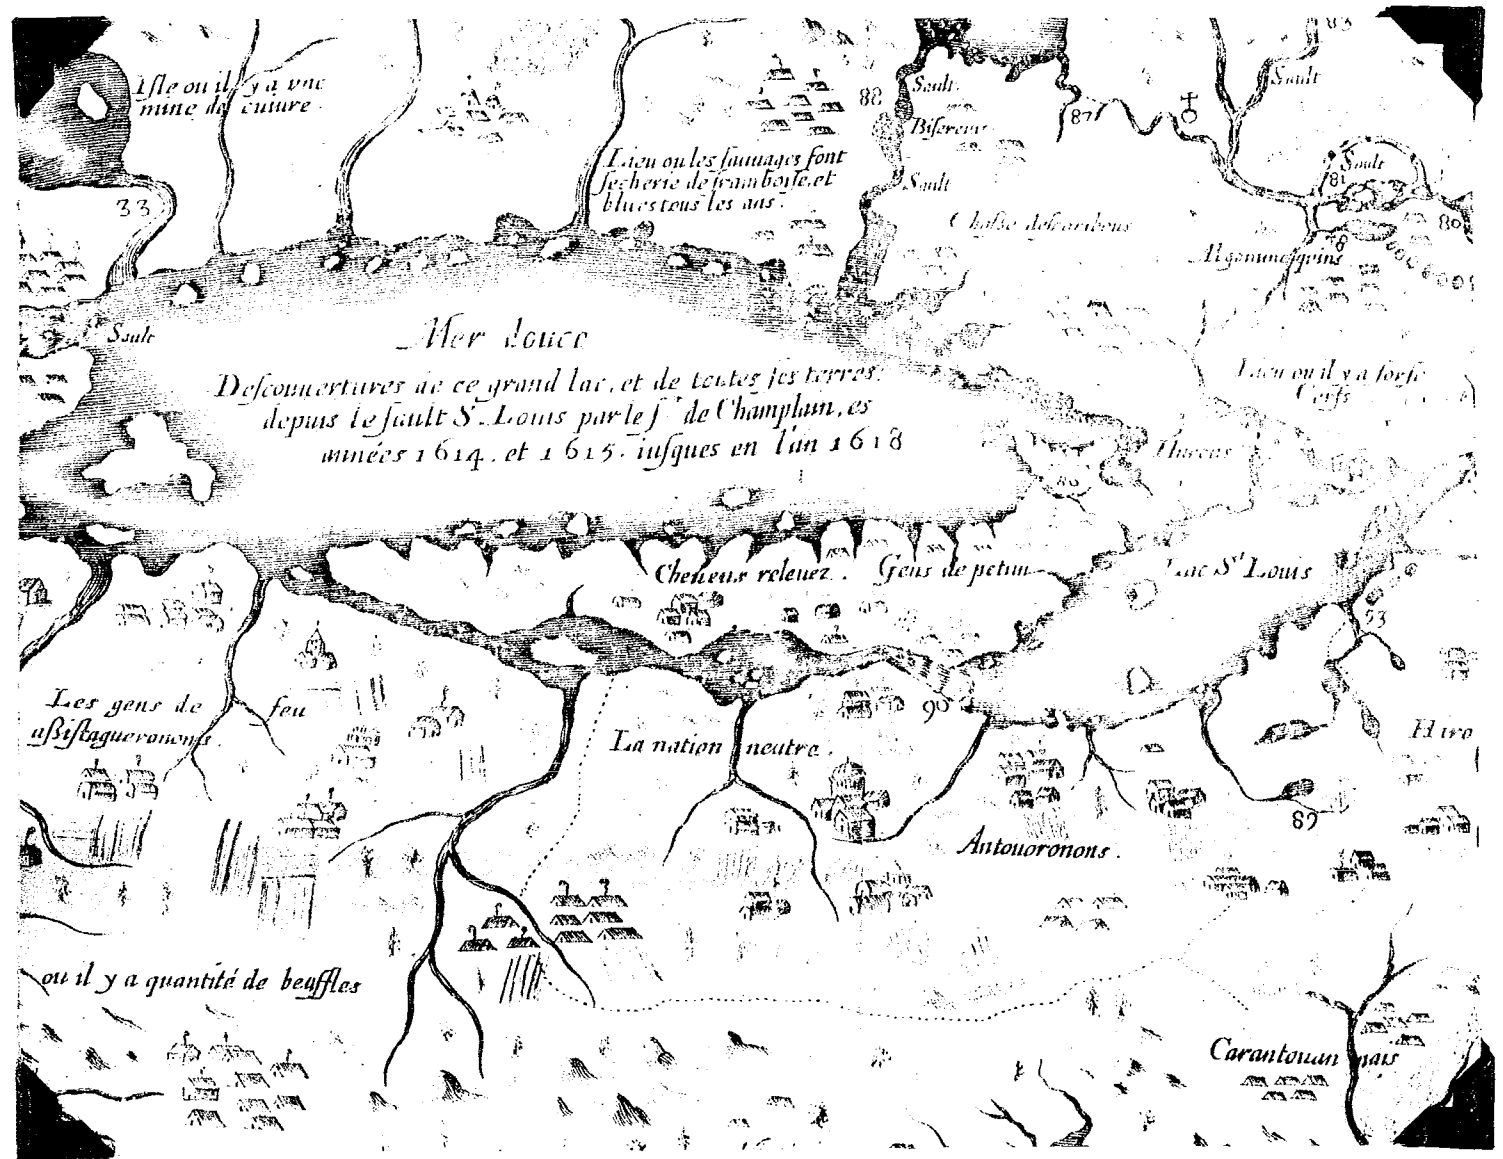 83
Isle ou il y a vne
mine de cuiure.
Sault
88
Sault
87
Biserenis
Lieu ou les sauuages font
secherie de framboise, et
blues tous les ans.
Sault
Sault
81
33
80
Chasse des caribous
78
Algommequins
Sault
Mer douce
Descouuertures de ce grand lac, et de toutes ses terres.
depuis le sault S. Louis par le sr. de Champlain, es
années 1614. et 1615. iusques en l'an 1618
Lieu ou il y a force
Cerfs
Hurons
Cheueux releuez.
Gens de petun
Lac St Louis
93
Les gens de feu
assistagueronons.
90
La nation neutre.
Hiro
89
Antouoronons.
ou il y a quantité de beuffles
Carantouannais